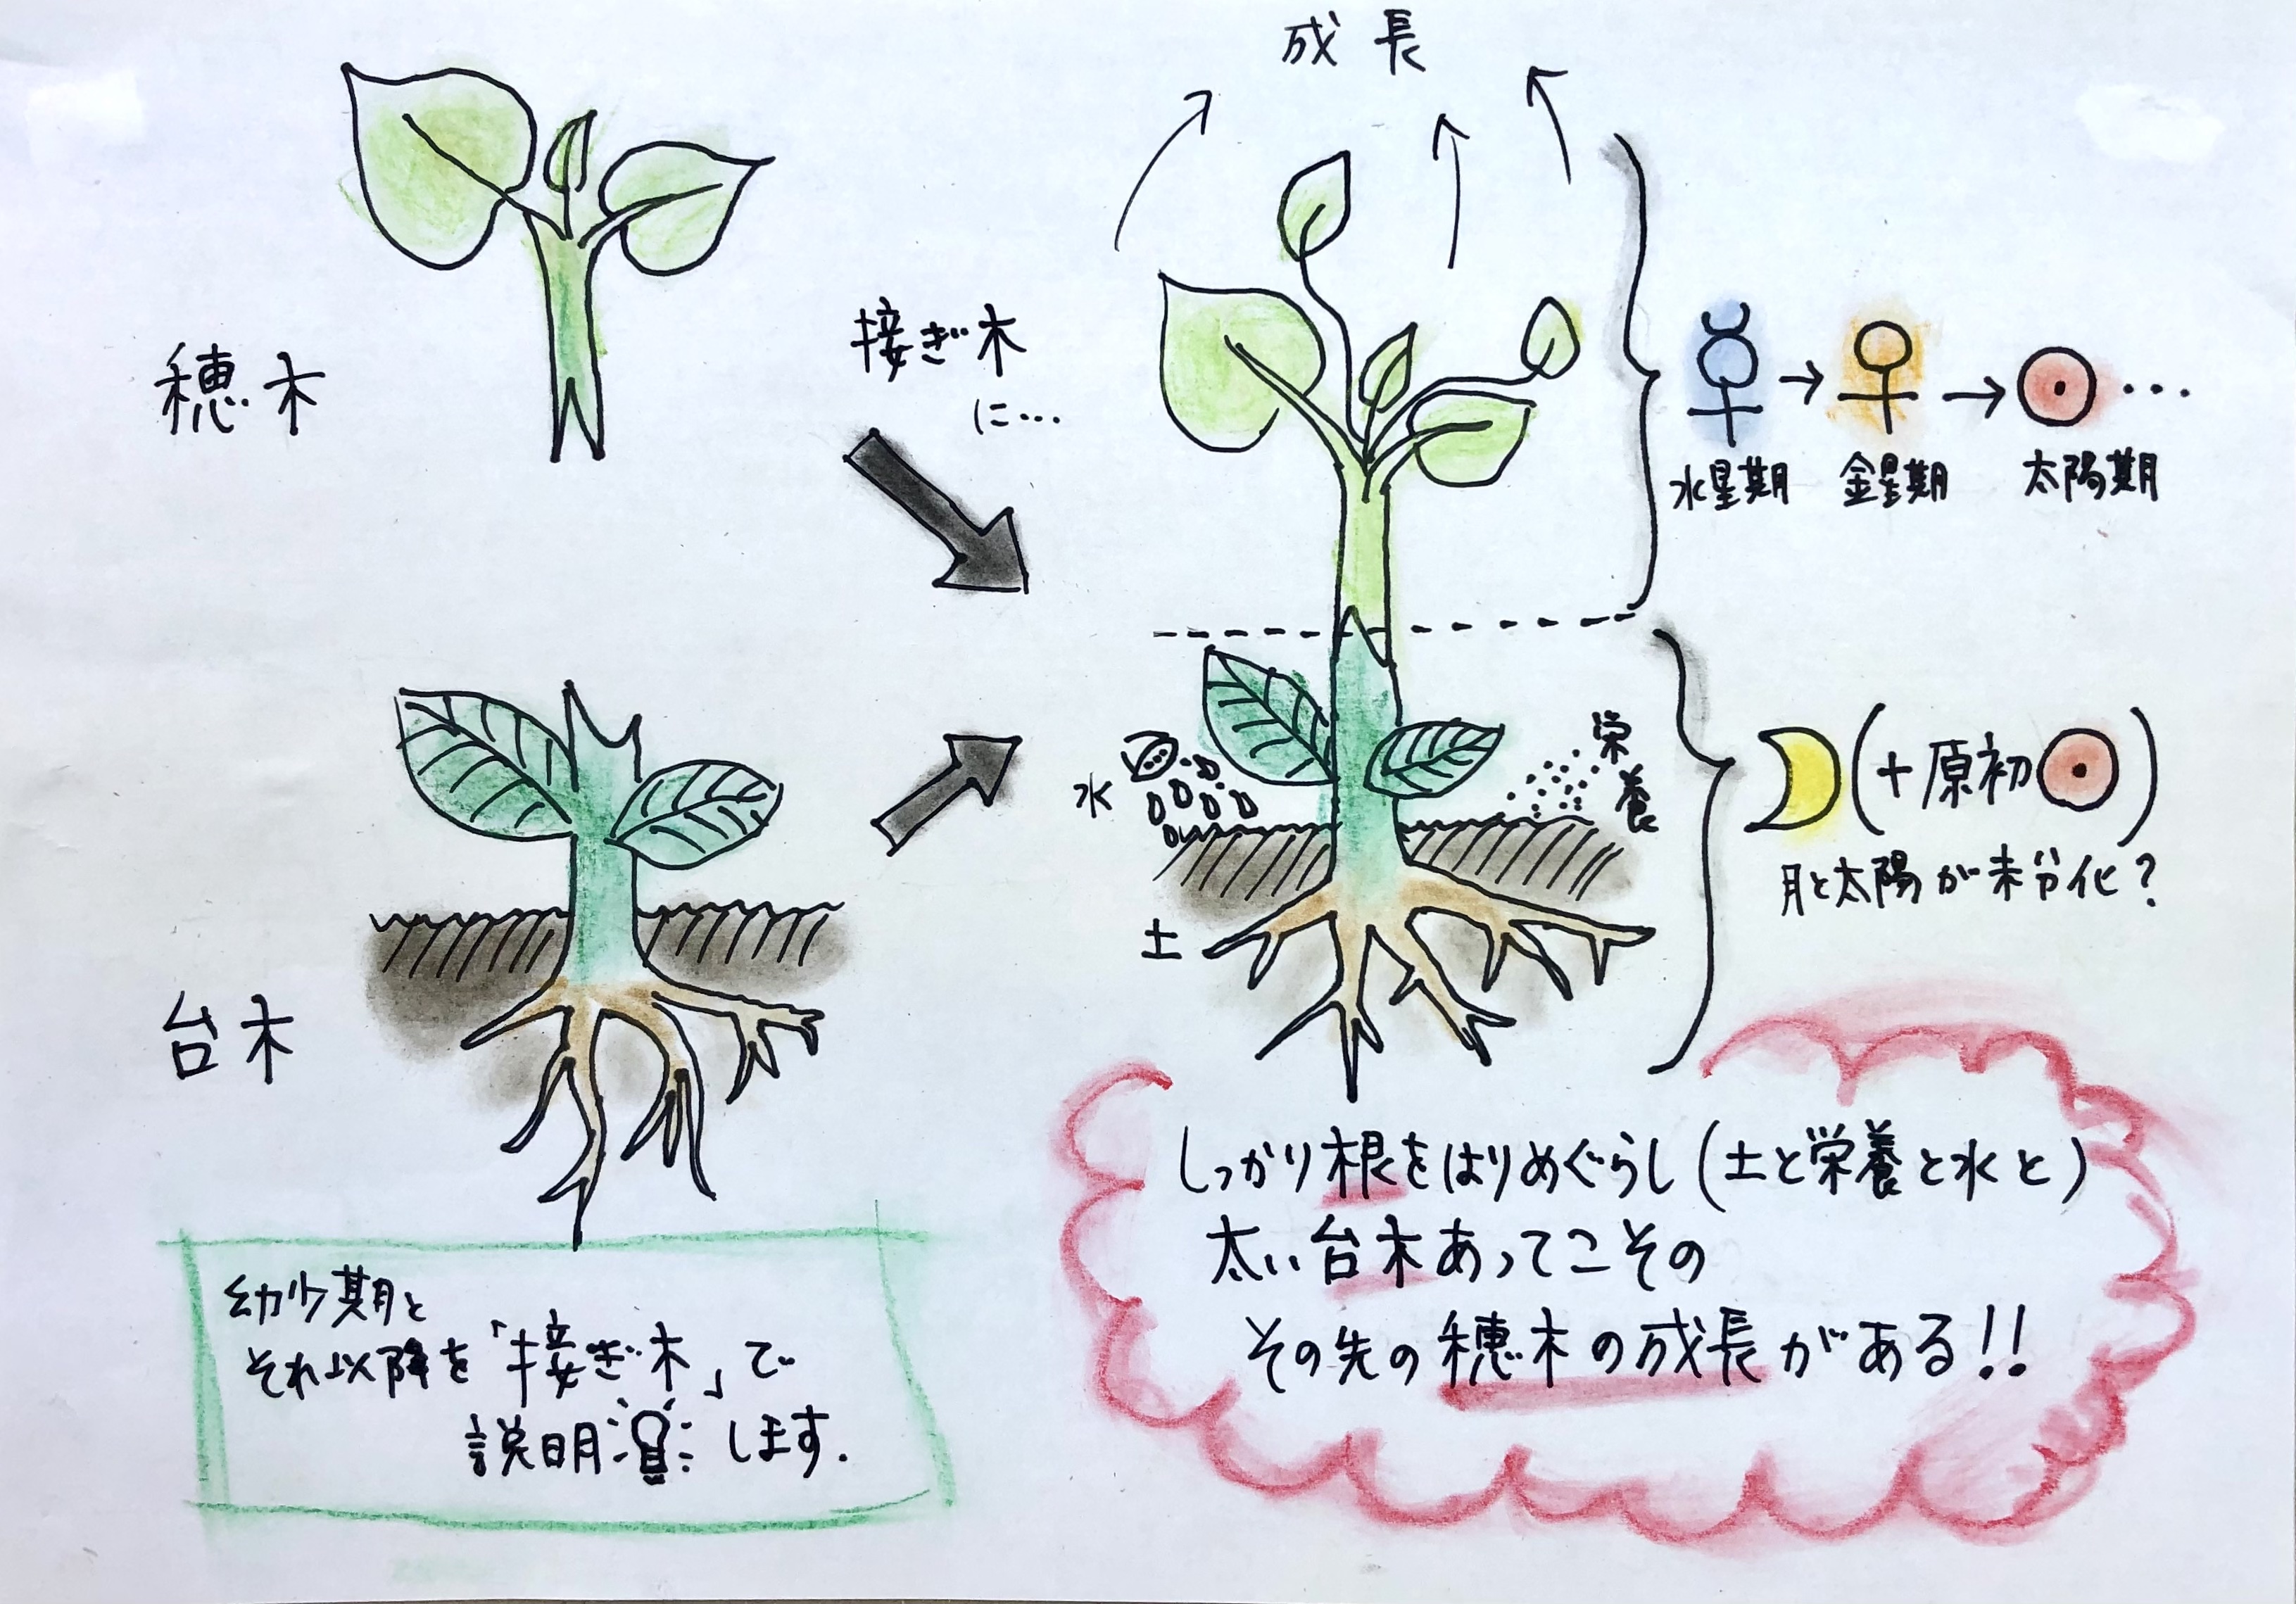 成長
穂木
接ぎ木
に…
水星期 → 金星期 → 太陽期 …
水
栄養
(+原初 )
月と太陽が未分化?
土
台木
しっかり根をはりめぐらし(土と栄養と水と)
太い台木あってこその
その先の穂木の成長がある!!
幼少期と
それ以降を「接ぎ木」で
説明 します.